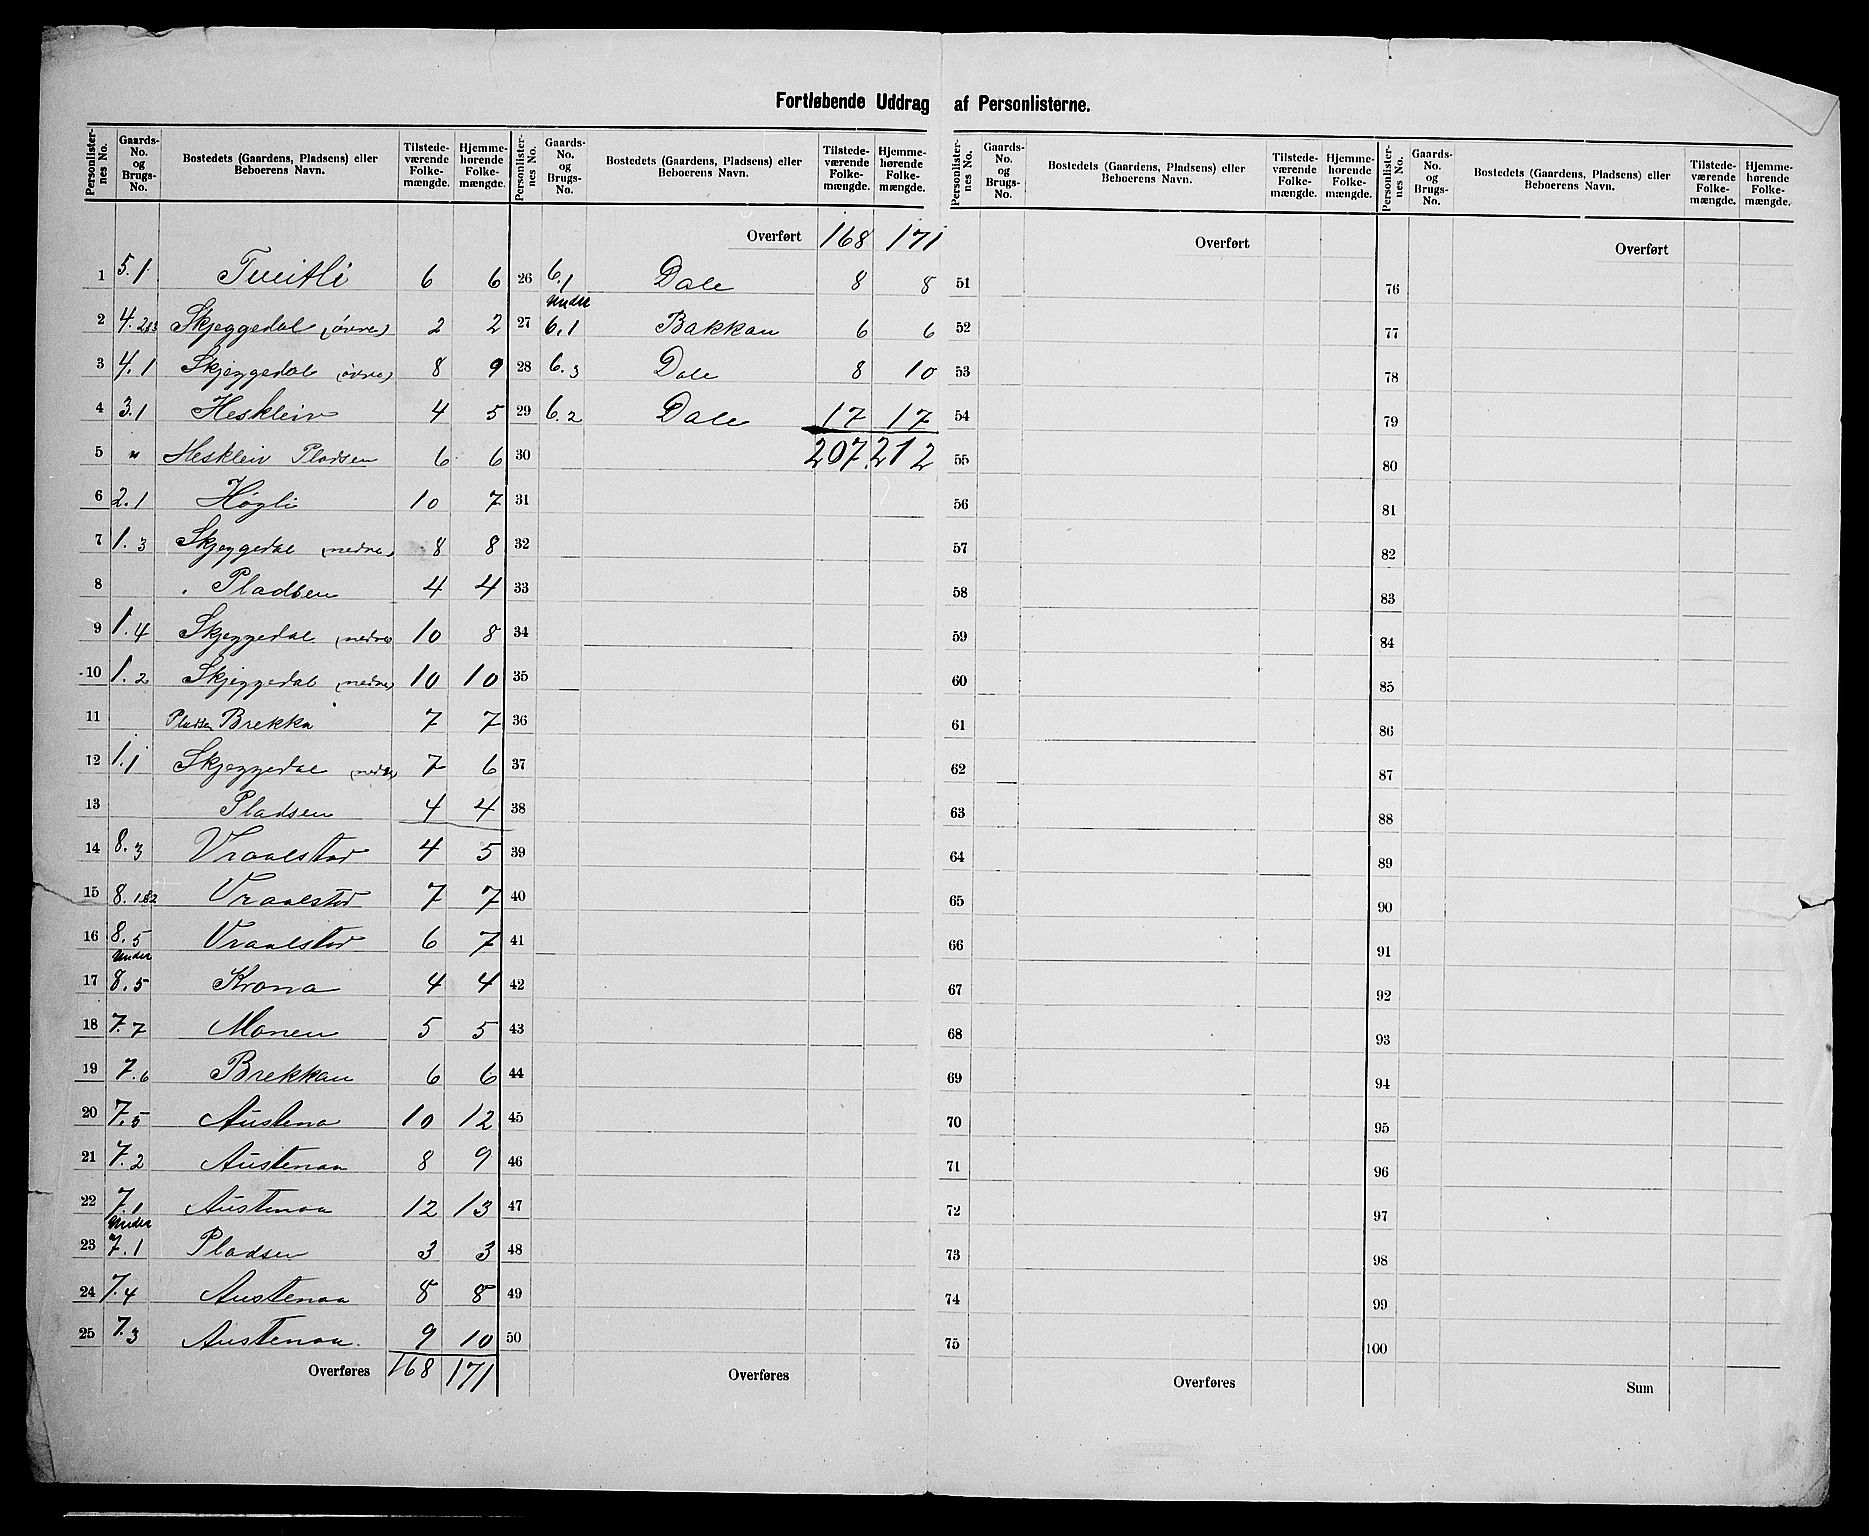 Fortløbende Uddrag af Personlisterne.
Personlister-nes No. Gaards-No. og Brugs-No. Bostedets (Gaardens, Pladsens) eller Beboerens Navn. Tilstede-værende Folke-mængde. Hjemme-hørende Folke-mængde.
1 5.1 Tveitli 6 6
2 4.2&3 Skjeggedal (øvre) 2 2
3 4.1 Skjeggedal (øvre) 8 9
4 3.1 Heskleiv 4 5
5 " Heskleiv Pladsen 6 6
6 2.1 Høgli 10 7
7 1.3 Skjeggedal (nedre) 8 8
8 Pladsen 4 4
9 1.4 Skjeggedal (nedre) 10 8
10 1.2 Skjeggedal (nedre) 10 10
11 Pladsen Brekka 7 7
12 1.1 Skjeggedal (nedre) 7 6
13 Pladsen 4 4
14 8.3 Vraalstad 4 5
15 8.1&2 Vraalstad 7 7
16 8.5 Vraalstad 6 7
17 Under 8.5 Krona 4 4
18 7.7 Monen 5 5
19 7.6 Brekkan 6 6
20 7.5 Austena 10 12
21 7.2 Austenaa 8 9
22 7.1 Austenaa 12 13
23 Under 7.1 Pladsen 3 3
24 7.4 Austenaa 8 8
25 7.3 Austenaa. 9 10
Overføres 168 171
Personlister-nes No. Gaards-No. og Brugs-No. Bostedets (Gaardens, Pladsens) eller Beboerens Navn. Tilstede-værende Folke-mængde. Hjemme-hørende Folke-mængde.
Overført 168 171
26 6.1 Dale 8 8
27 Under 6.1 Bakkan 6 6
28 6.3 Dale 8 10
29 6.2 Dale 17 17
30 207. 212
31
32
33
34
35
36
37
38
39
40
41
42
43
44
45
46
47
48
49
50
Overføres
Personlister-nes No. Gaards-No. og Brugs-No. Bostedets (Gaardens, Pladsens) eller Beboerens Navn. Tilstede-værende Folke-mængde. Hjemme-hørende Folke-mængde.
Overført
51
52
53
54
55
56
57
58
59
60
61
62
63
64
65
66
67
68
69
70
71
72
73
74
75
Overføres
Personlister-nes No. Gaards-No. og Brugs-No. Bostedets (Gaardens, Pladsens) eller Beboerens Navn. Tilstede-værende Folke-mængde. Hjemme-hørende Folke-mængde.
Overført
76
77
78
79
80
81
82
83
84
85
86
87
88
89
90
91
92
93
94
95
96
97
98
99
100
Sum